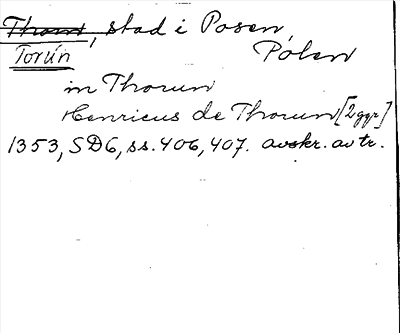 Thorn, stad i Posen,
Toruń Polen
in Thorun
Henricus de Thorun [2 ggr]
1353, SD6, ss. 406, 407. avskr. av tr.